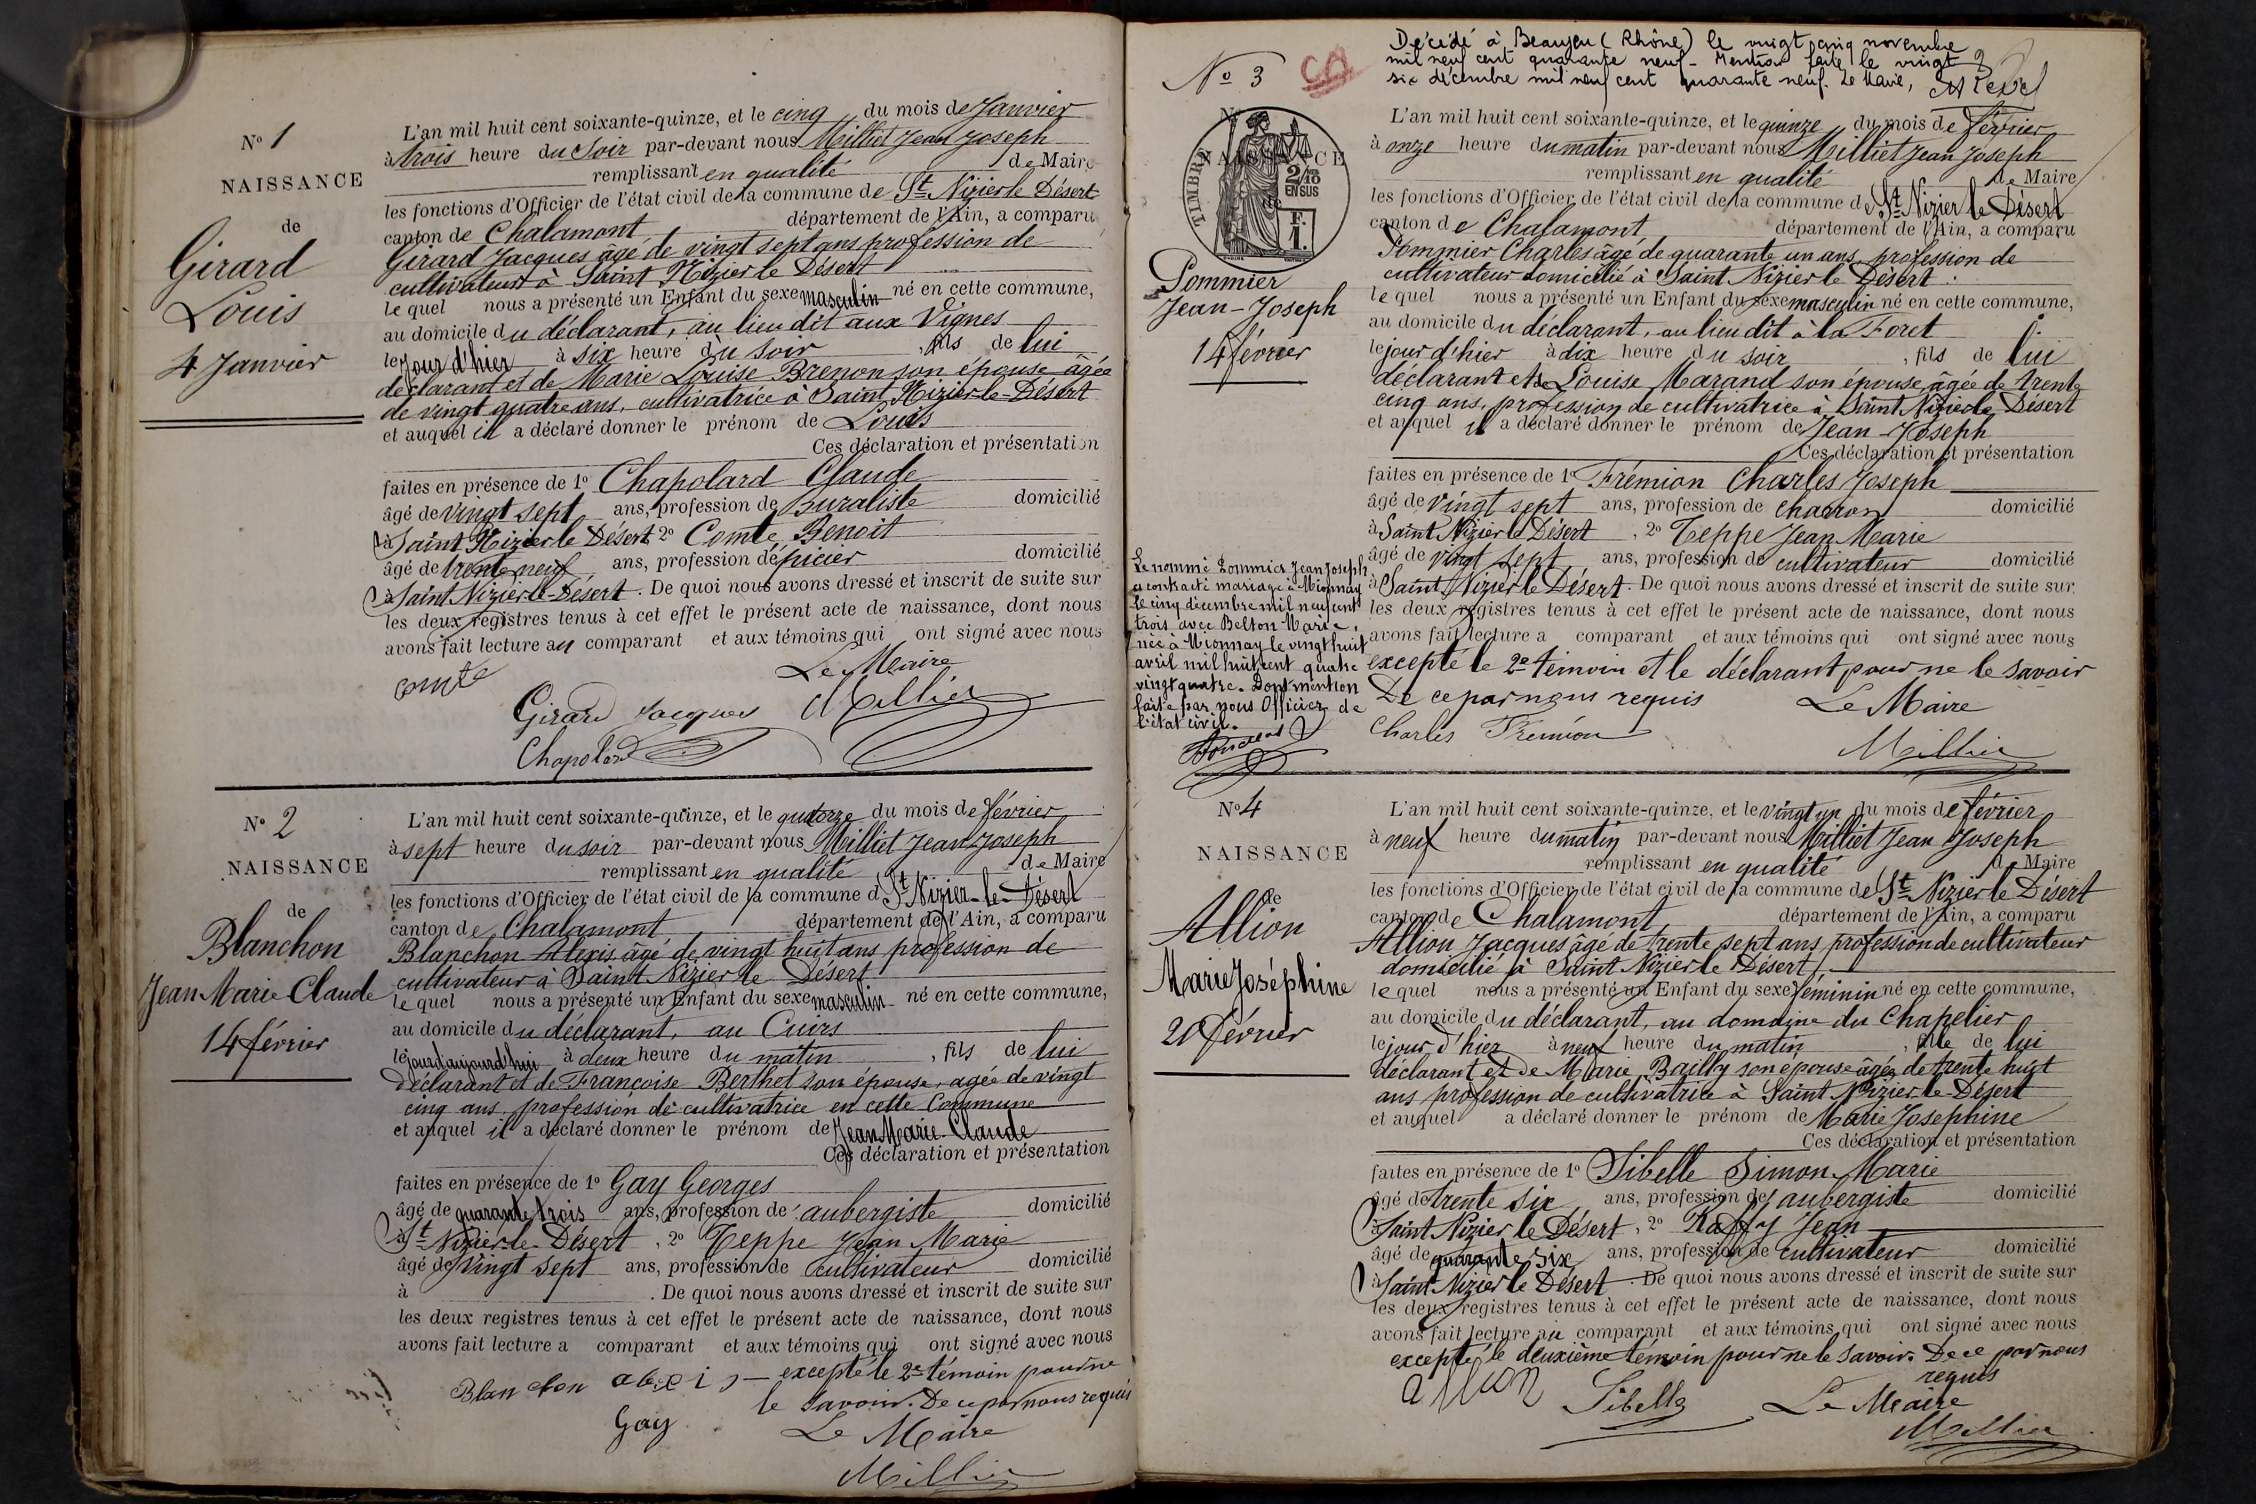 Nº 1
NAISSANCE
de
Girard
Louis
4 Janvier
L'an mil huit cent soixante-quinze, et le cinq du mois de Janvier
à trois heure du Soir par-devant nous Milliet Jean Joseph
remplissant en qualité de Maire
les fonctions d'Officier de l'état civil de la commune de St Nizier le Désert
canton de Chalamont département de l'Ain, a comparu
Girard Jacques âgé de vingt sept ans profession de
cultivateur à Saint Nizier le Désert
le quel nous a présenté un Enfant du sexe masculin né en cette commune,
au domicile du déclarant, au lieu dit aux Vignes
le Jour d'hier à six heure du soir, fils de lui
déclarant et de Marie Louise Brenon son épouse âgée
de vingt quatre ans, cultivatrice à Saint Nizier-le-Désert
et auquel il a déclaré donner le prénom de Louis
Ces déclaration et présentation
faites en présence de 1º Chapolard Claude
âgé de vingt sept ans, profession de Buraliste domicilié
à Saint Nizier le Désert 2º Comte Benoit
âgé de trente neuf ans, profession d'épicier domicilié
à Saint Nizier le-Désert. De quoi nous avons dressé et inscrit de suite sur
les deux registres tenus à cet effet le présent acte de naissance, dont nous
avons fait lecture au comparant et aux témoins qui ont signé avec nous
Le Maire
comte
Girard Jacques Milliet
Chapolard
Nº 2
NAISSANCE
de
Blanchon
Jean Marie Claude
14 février
L'an mil huit cent soixante-quinze, et le quatorze du mois de février
à sept heure du soir par-devant nous Milliet Jean Joseph
remplissant en qualité de Maire
les fonctions d'Officier de l'état civil de la commune d St Nizier-le-Désert
canton de Chalamont département de l'Ain, a comparu
Blanchon Alexis âgé de vingt huit ans profession de
cultivateur à Saint Nizier le Désert
le quel nous a présenté un Enfant du sexe masculin né en cette commune,
au domicile du déclarant, au Cuirs
le jour d'aujourd'hui à deux heure du matin, fils de lui
déclarant et de Françoise Berthet son épouse, agée de vingt
cinq ans, profession de cultivatrice en cette Commune
et auquel il a déclaré donner le prénom de Jean Marie Claude
Ces déclaration et présentation
faites en présence de 1º Gay Georges
âgé de quarante trois ans, profession de aubergiste domicilié
à St Nizier-le-Désert, 2º Teppe Jean Marie
âgé de Vingt sept ans, profession de cultivateur domicilié
à . De quoi nous avons dressé et inscrit de suite sur
les deux registres tenus à cet effet le présent acte de naissance, dont nous
avons fait lecture a comparant et aux témoins qui ont signé avec nous
Blanchon alexis — excepté le 2e témoin pour ne
le savoir. De ce par nous requis
Gay Le Maire
Milliet
Décédé à Beaujeu (Rhône) le vingt cinq novembre
mil neuf cent quarante neuf - Mention faite le vingt
six décembre mil neuf cent quarante neuf. Le Maire,
Nº 3 CA
3
N
NAISSANCE
de
TIMBRE
2/10
EN SUS
F.
1.
Pommier
Jean-Joseph
14 février
L'an mil huit cent soixante-quinze, et le quinze du mois de février
à onze heure du matin par-devant nous Milliet Jean Joseph
remplissant en qualité de Maire
les fonctions d'Officier de l'état civil de la commune de St Nizier le Désert
canton de Chalamont département de l'Ain, a comparu
Pommier Charles âgé de quarante un ans, profession de
cultivateur domicilié à Saint Nizier le Désert
le quel nous a présenté un Enfant du sexe masculin né en cette commune,
au domicile du déclarant, au lieu dit à la Foret
le jour d'hier à dix heure du soir, fils de lui
déclarant et de Louise Marand son épouse, âgée de trente
cinq ans, profession de cultivatrice à Saint Nizier le Désert
et auquel il a déclaré donner le prénom de Jean-Joseph
Ces déclaration et présentation
faites en présence de 1º Frémion Charles Joseph
âgé de vingt sept ans, profession de charron domicilié
à Saint Nizier le Désert, 2º Teppe Jean Marie
âgé de vingt sept ans, profession de cultivateur domicilié
à Saint Nizier le Désert. De quoi nous avons dressé et inscrit de suite sur
les deux registres tenus à cet effet le présent acte de naissance, dont nous
avons fait lecture a comparant et aux témoins qui ont signé avec nous
excepté le 2e témoin et le déclarant pour ne le savoir
De ce par nous requis Le Maire
Charles Fremion
Milliet
Le nommé Pommier Jean Joseph
a contracté mariage à Mionnay
le cinq décembre mil neuf cent
trois avec Belton Marie,
née à Mionnay le vingt huit
avril mil huit cent quatre
vingt quatre. Dont mention
faite par nous Officier de
l'état civil.
Nº 4
NAISSANCE
de
Allion
Marie Joséphine
20 février
L'an mil huit cent soixante-quinze, et le vingt un du mois de février
à neuf heure du matin par-devant nous Milliet Jean Joseph
remplissant en qualité de Maire
les fonctions d'Officier de l'état civil de la commune de St Nizier le Désert
canton de Chalamont département de l'Ain, a comparu
Allion Jacques âgé de trente sept ans, profession de cultivateur
domicilié à Saint Nizier le Désert,
le quel nous a présenté un Enfant du sexe féminin né en cette commune,
au domicile du déclarant, au domaine du Chapelier
le jour d'hier à neuf heure du matin, fille de lui
déclarant et de Marie Bailly son épouse âgée de trente huit
ans profession de cultivatrice à Saint Nizier-le-Désert
et auquel a déclaré donner le prénom de Marie Josephine
Ces déclaration et présentation
faites en présence de 1º Sibelle Simon Marie
âgé de trente six ans, profession de aubergiste domicilié
à Saint Nizier le Désert, 2º Raffy Jean
âgé de quarante six ans, profession de cultivateur domicilié
à Saint Nizier le Désert. De quoi nous avons dressé et inscrit de suite sur
les deux registres tenus à cet effet le présent acte de naissance, dont nous
avons fait lecture au comparant et aux témoins qui ont signé avec nous
excepté le deuxième témoin pour ne le savoir. De ce par nous
requis
allion Sibelle Le Maire
Milliet